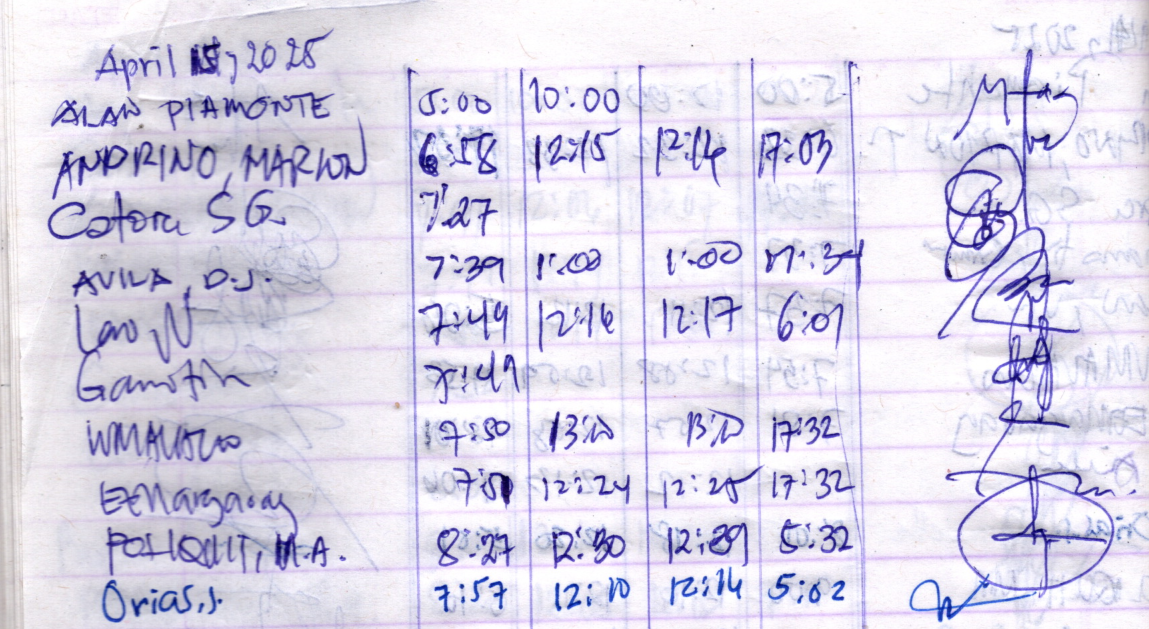 April 15, 2025
ALAN PIAMONTE 5:00 10:00
ANDRINO, MARLON 6:58 12:15 12:16 17:03
Catora SG. 7:27
AVILA, D.J. 7:39 1:00 1:00 17:34
Lao, N 7:49 12:16 12:17 6:01
7:49
7:50 13:10 13:10 17:32
7:51 12:24 12:25 17:32
POLIQUIT, M.A. 8:27 12:30 12:39 5:32
Orias, J. 7:57 12:10 12:14 5:02